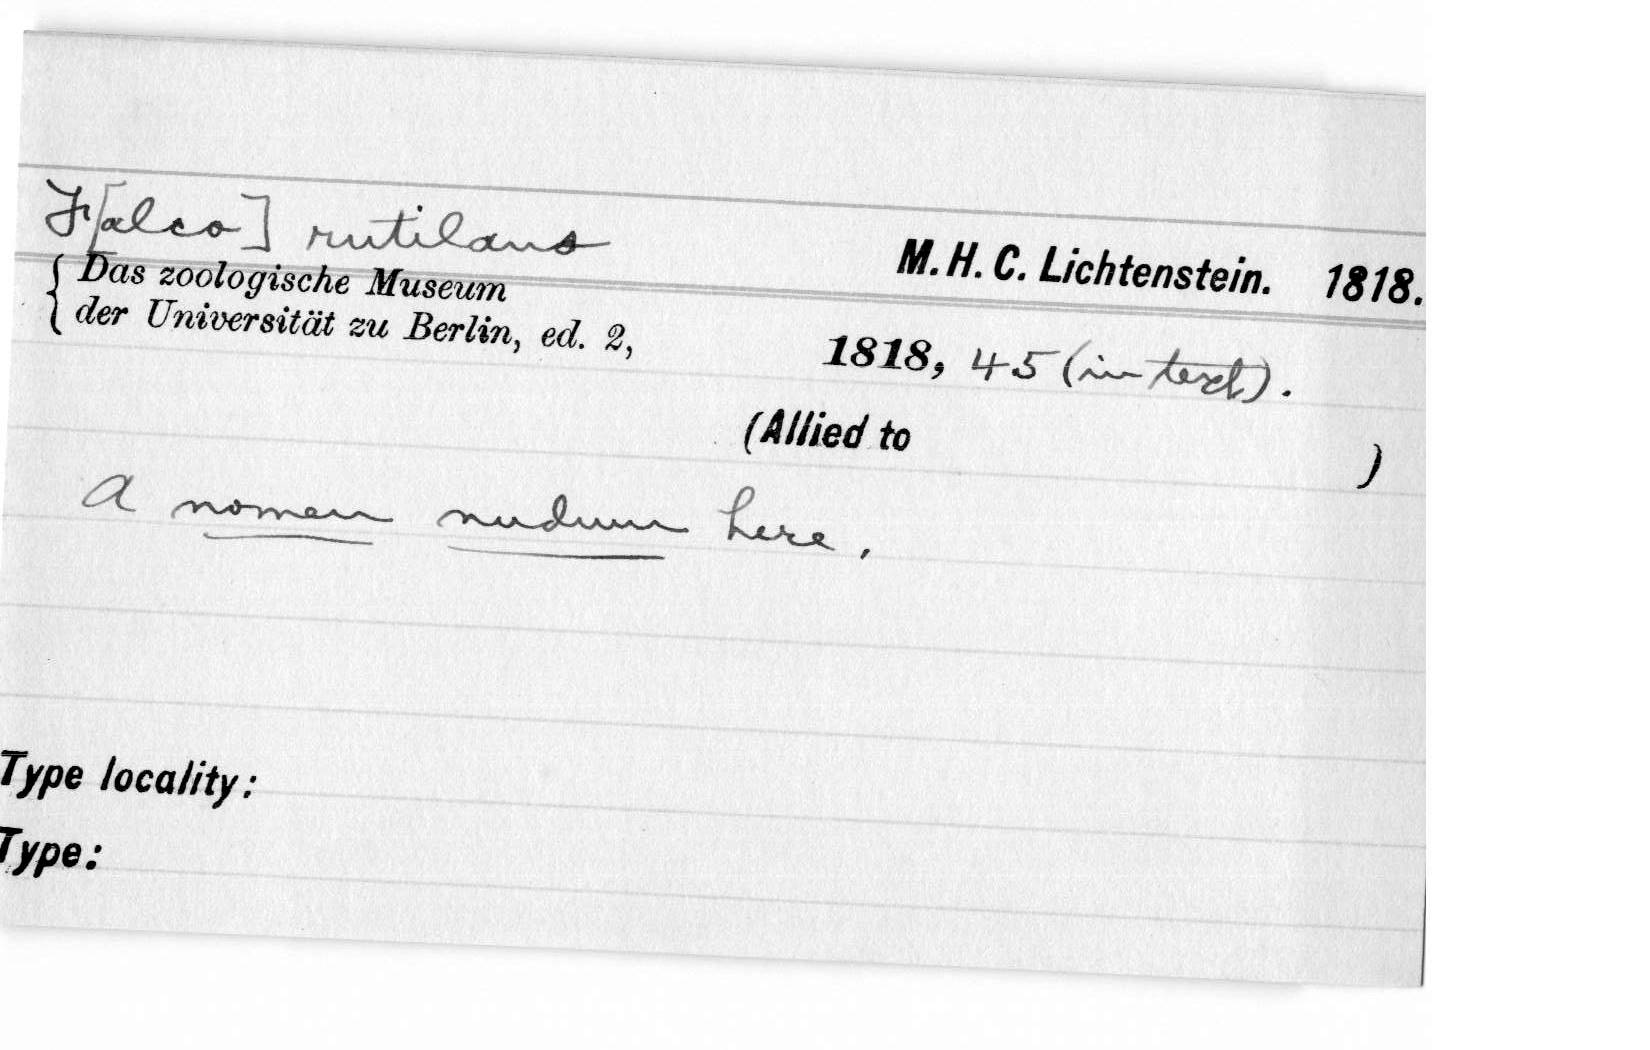 F[alco] rutilans
M. H. C. Lichtenstein. 1818.
Das zoologische Museum
der Universität zu Berlin, ed. 2,
1818, 45 (in text).
(Allied to )
A nomen nudum here.
Type locality:
Type: